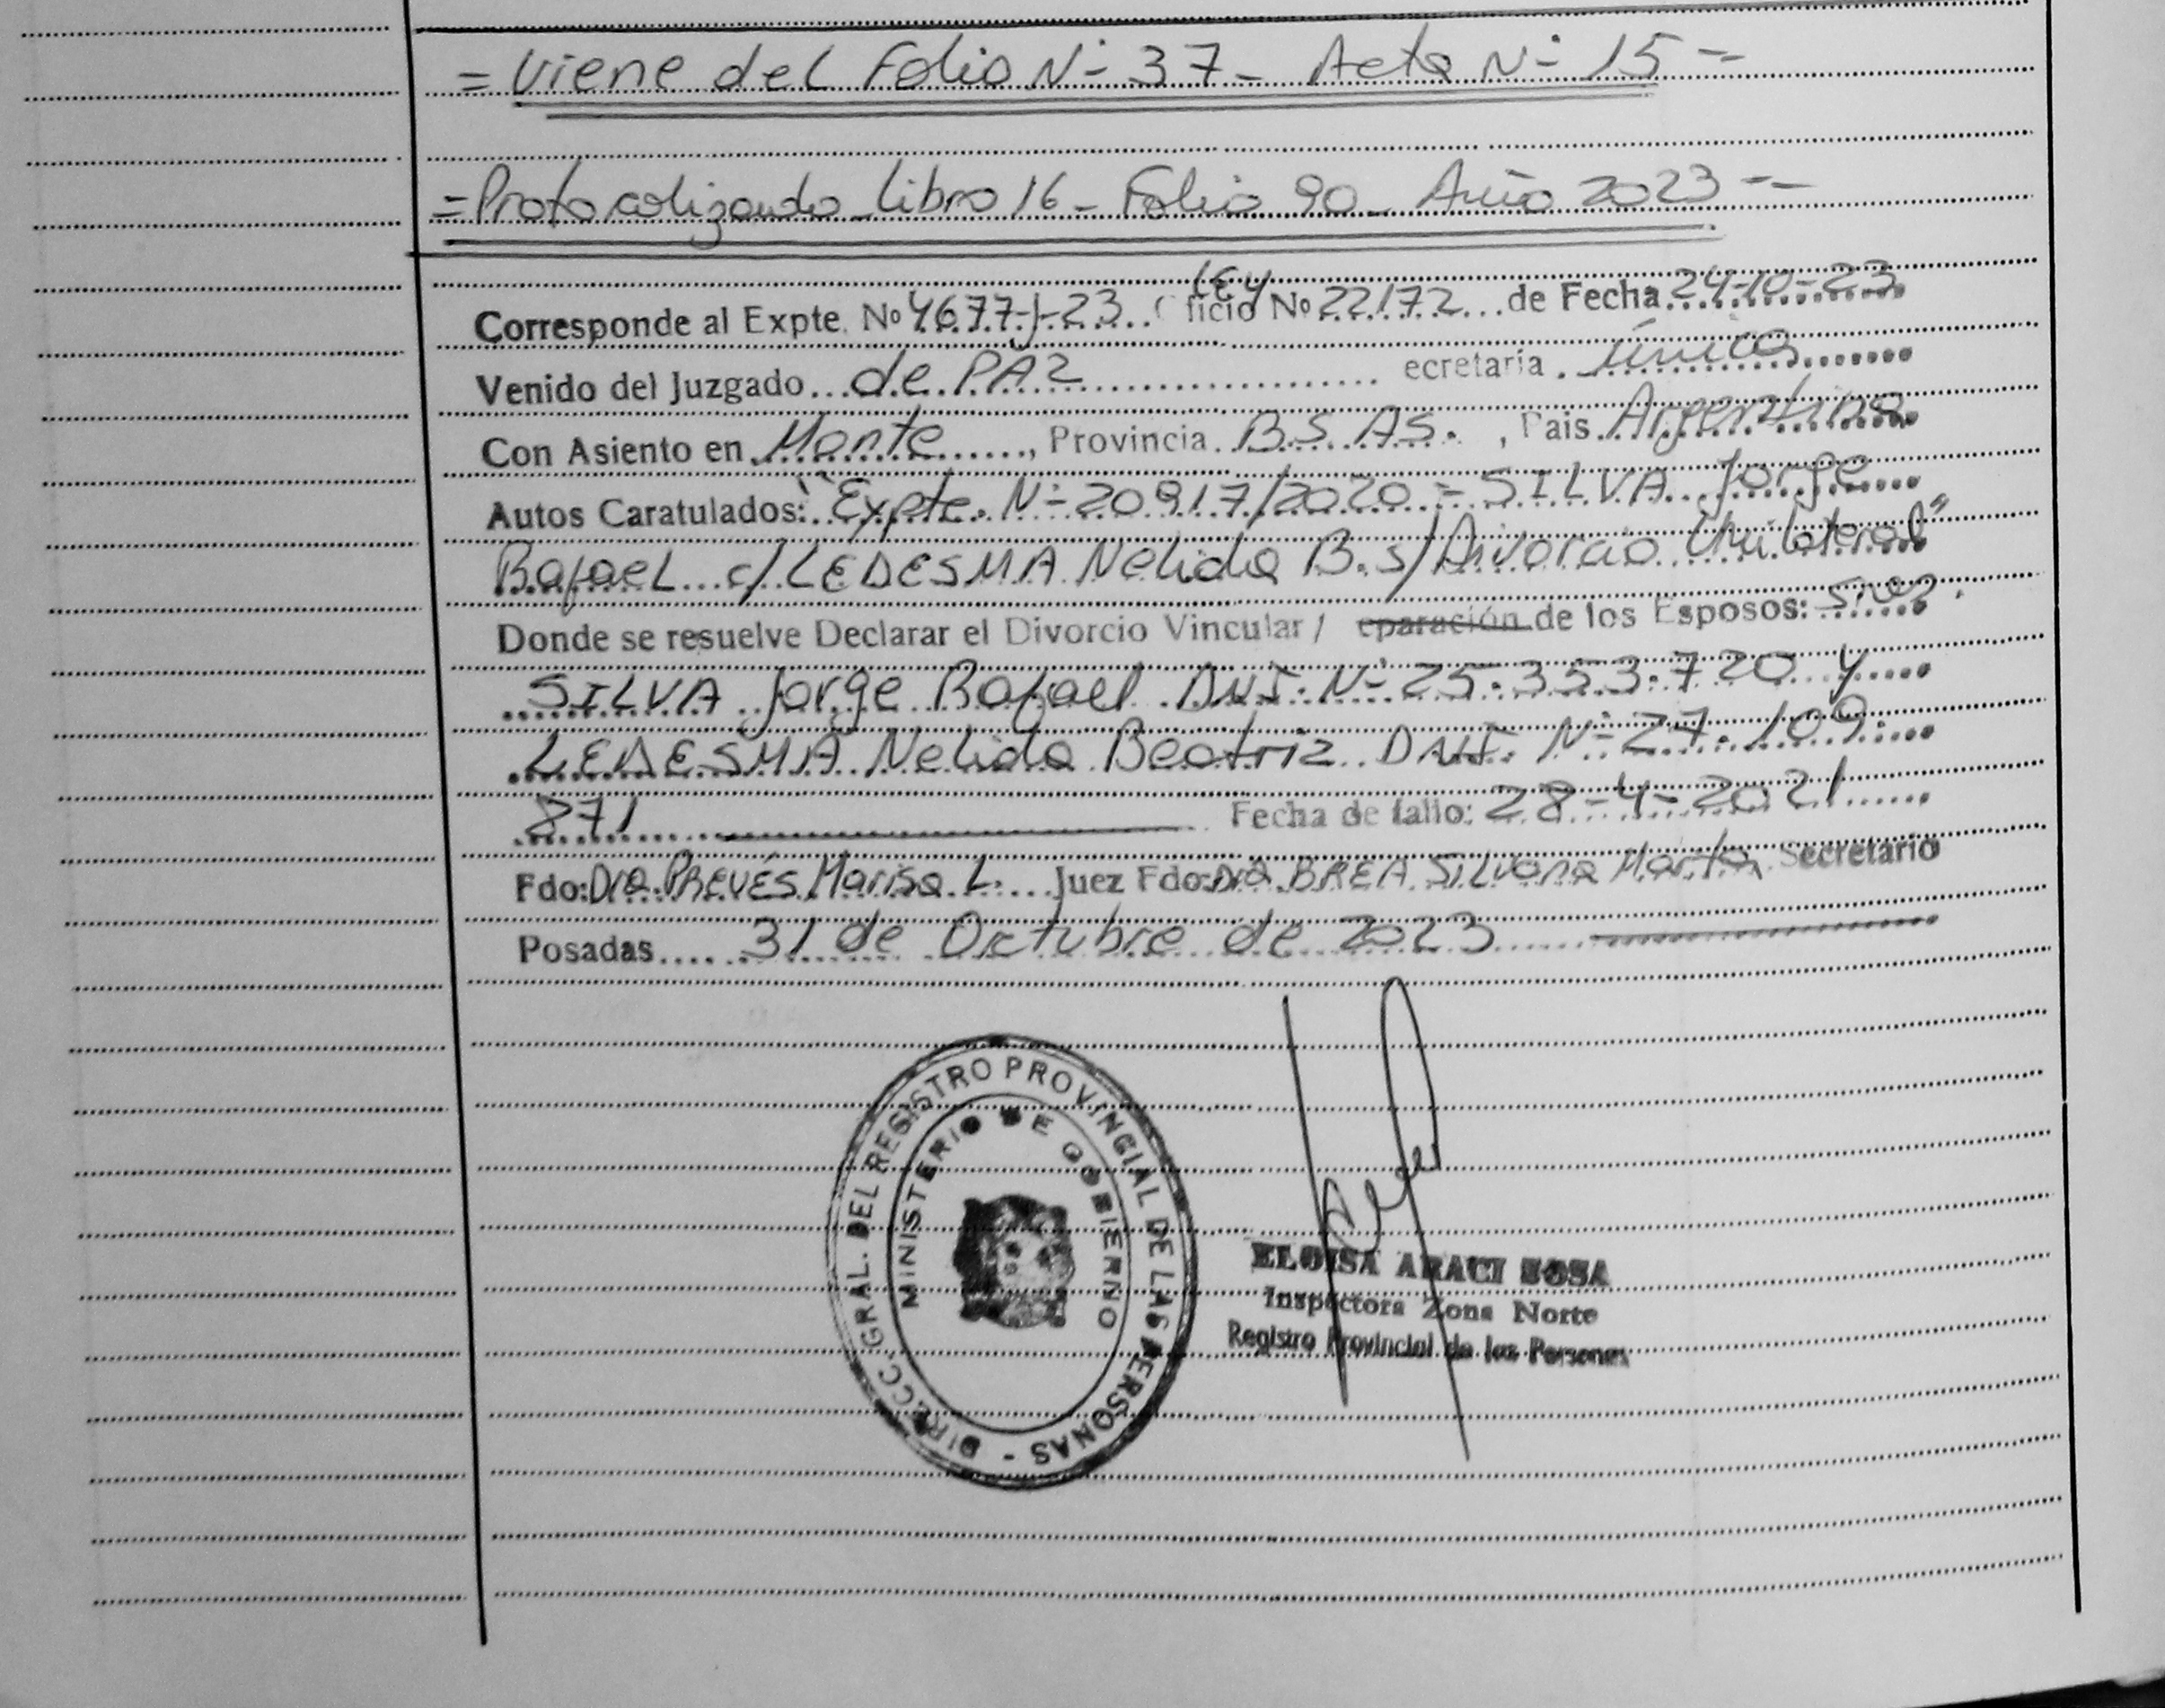 = Viene del Folio N- 37 - Acta N- 15 =
= Protocolizando Libro 16 - Folio 90 - Año 2023 --
LEY
Corresponde al Expte. Nº 4677-J-23.. ficio Nº 22172... de Fecha 24-10-23
Venido del Juzgado... de PAZ ... ecretaría . única
Con Asiento en Monte......, Provincia. BS. AS. , Pais. Argentina
Autos Caratulados: "Expte. N- 20917/2020 - SILVA Jorge
Rafael c/ LEDESMA Nelida B. s/ Divorcio Unilateral"
Donde se resuelve Declarar el Divorcio Vincular / eparación de los Esposos: Sres.
SILVA Jorge Rafael DNI. N- 25.353.720 y
LEDESMA Nelida Beatriz DNI. N- 27.109.
871 Fecha de fallo: 28-4-2021
Fdo: Dra. PREVÉS Marisa L. Juez Fdo: Dra. BREA Silvana Marta Secretario
Posadas..... 31 de Octubre de 2023
DIRECC. GRAL. DEL REGISTRO PROVINCIAL DE LAS PERSONAS -
MINISTERIO DE GOBIERNO
ELOISA ARACI SOSA
Inspectora Zona Norte
Registro Provincial de las Personas